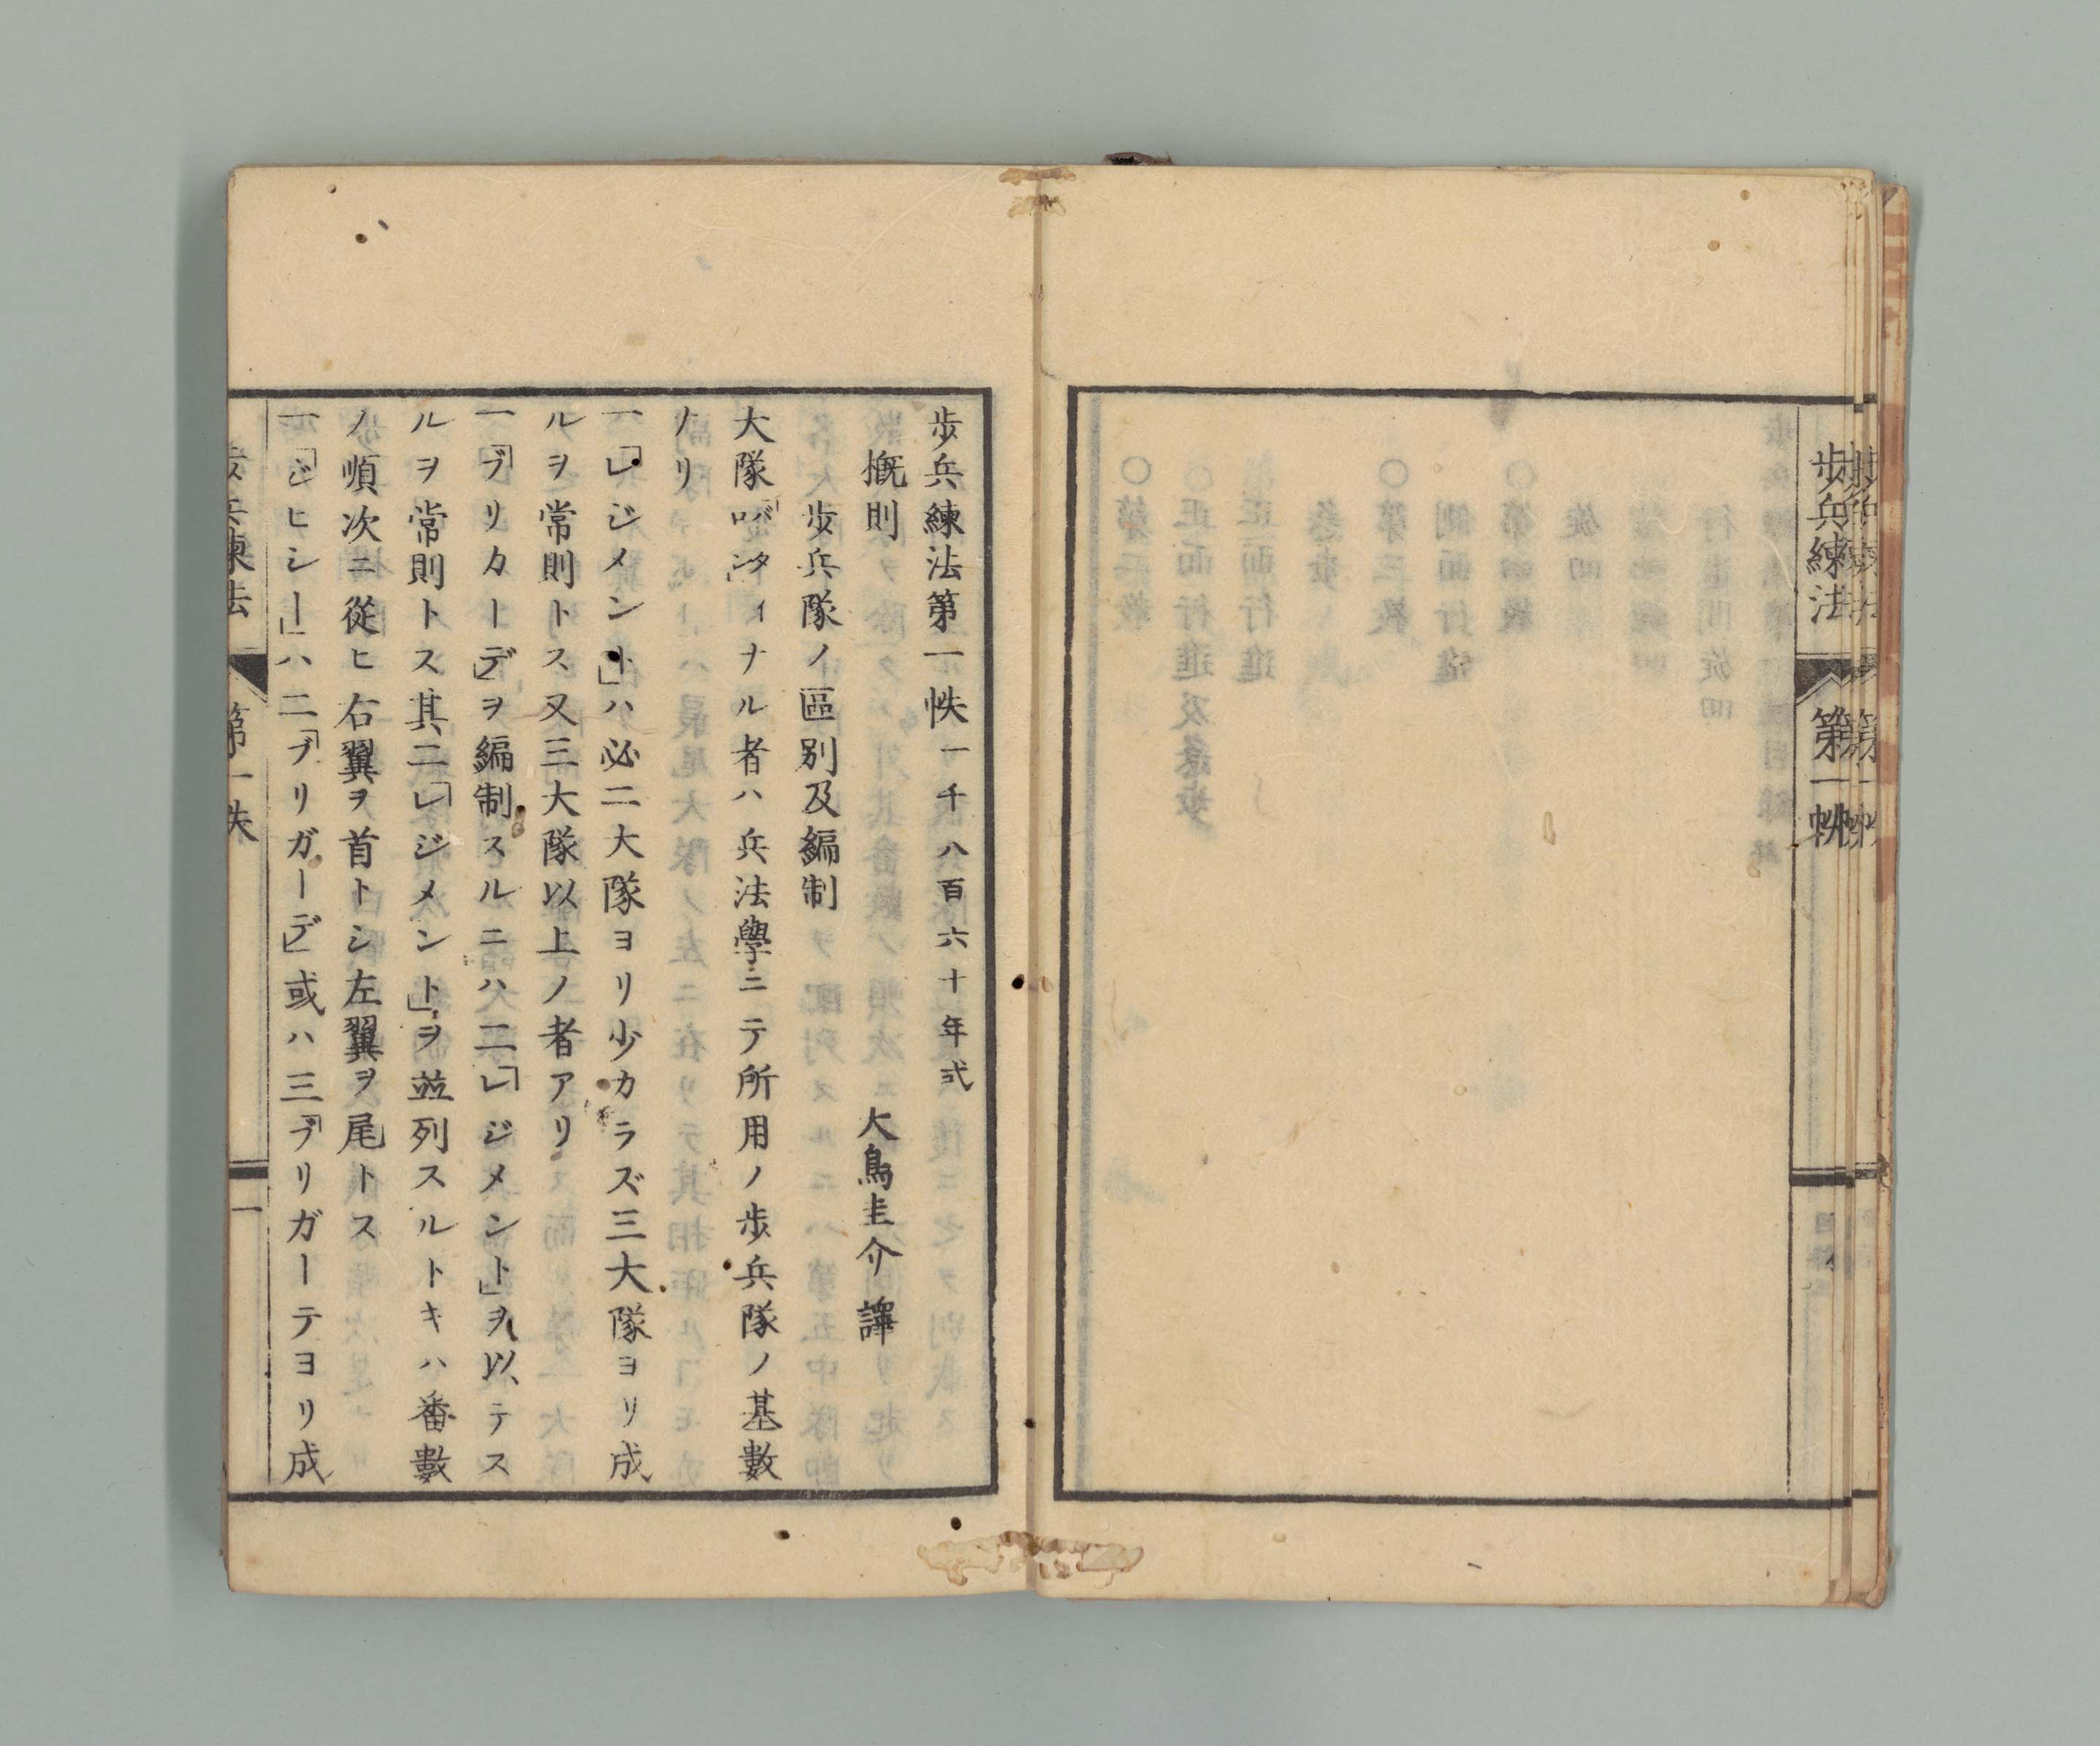 歩兵練法
第一帙
歩兵練法第一帙 一千八百六十年式
概則 大鳥圭介譯
歩兵隊ノ區別及編制
大隊「バタイナル者ハ兵法學ニテ所用ノ歩兵隊ノ基數
ナリ
一「レジメント」ハ必二大隊ヨリ少カラズ三大隊ヨリ成
ルヲ常則トス又三大隊以上ノ者アリ
一「ブリカーデ」ヲ編制スルニハ二「レジメント」ヲ以テス
ルヲ常則トス其二「レジメント」ヲ並列スルトキハ番數
ノ順次ニ從ヒ右翼ヲ首トシ左翼ヲ尾トス
一「ジヒシー」ハ二「ブリガーデ」或ハ三「ブリガーテヨリ成
歩兵練法
第一帙
一